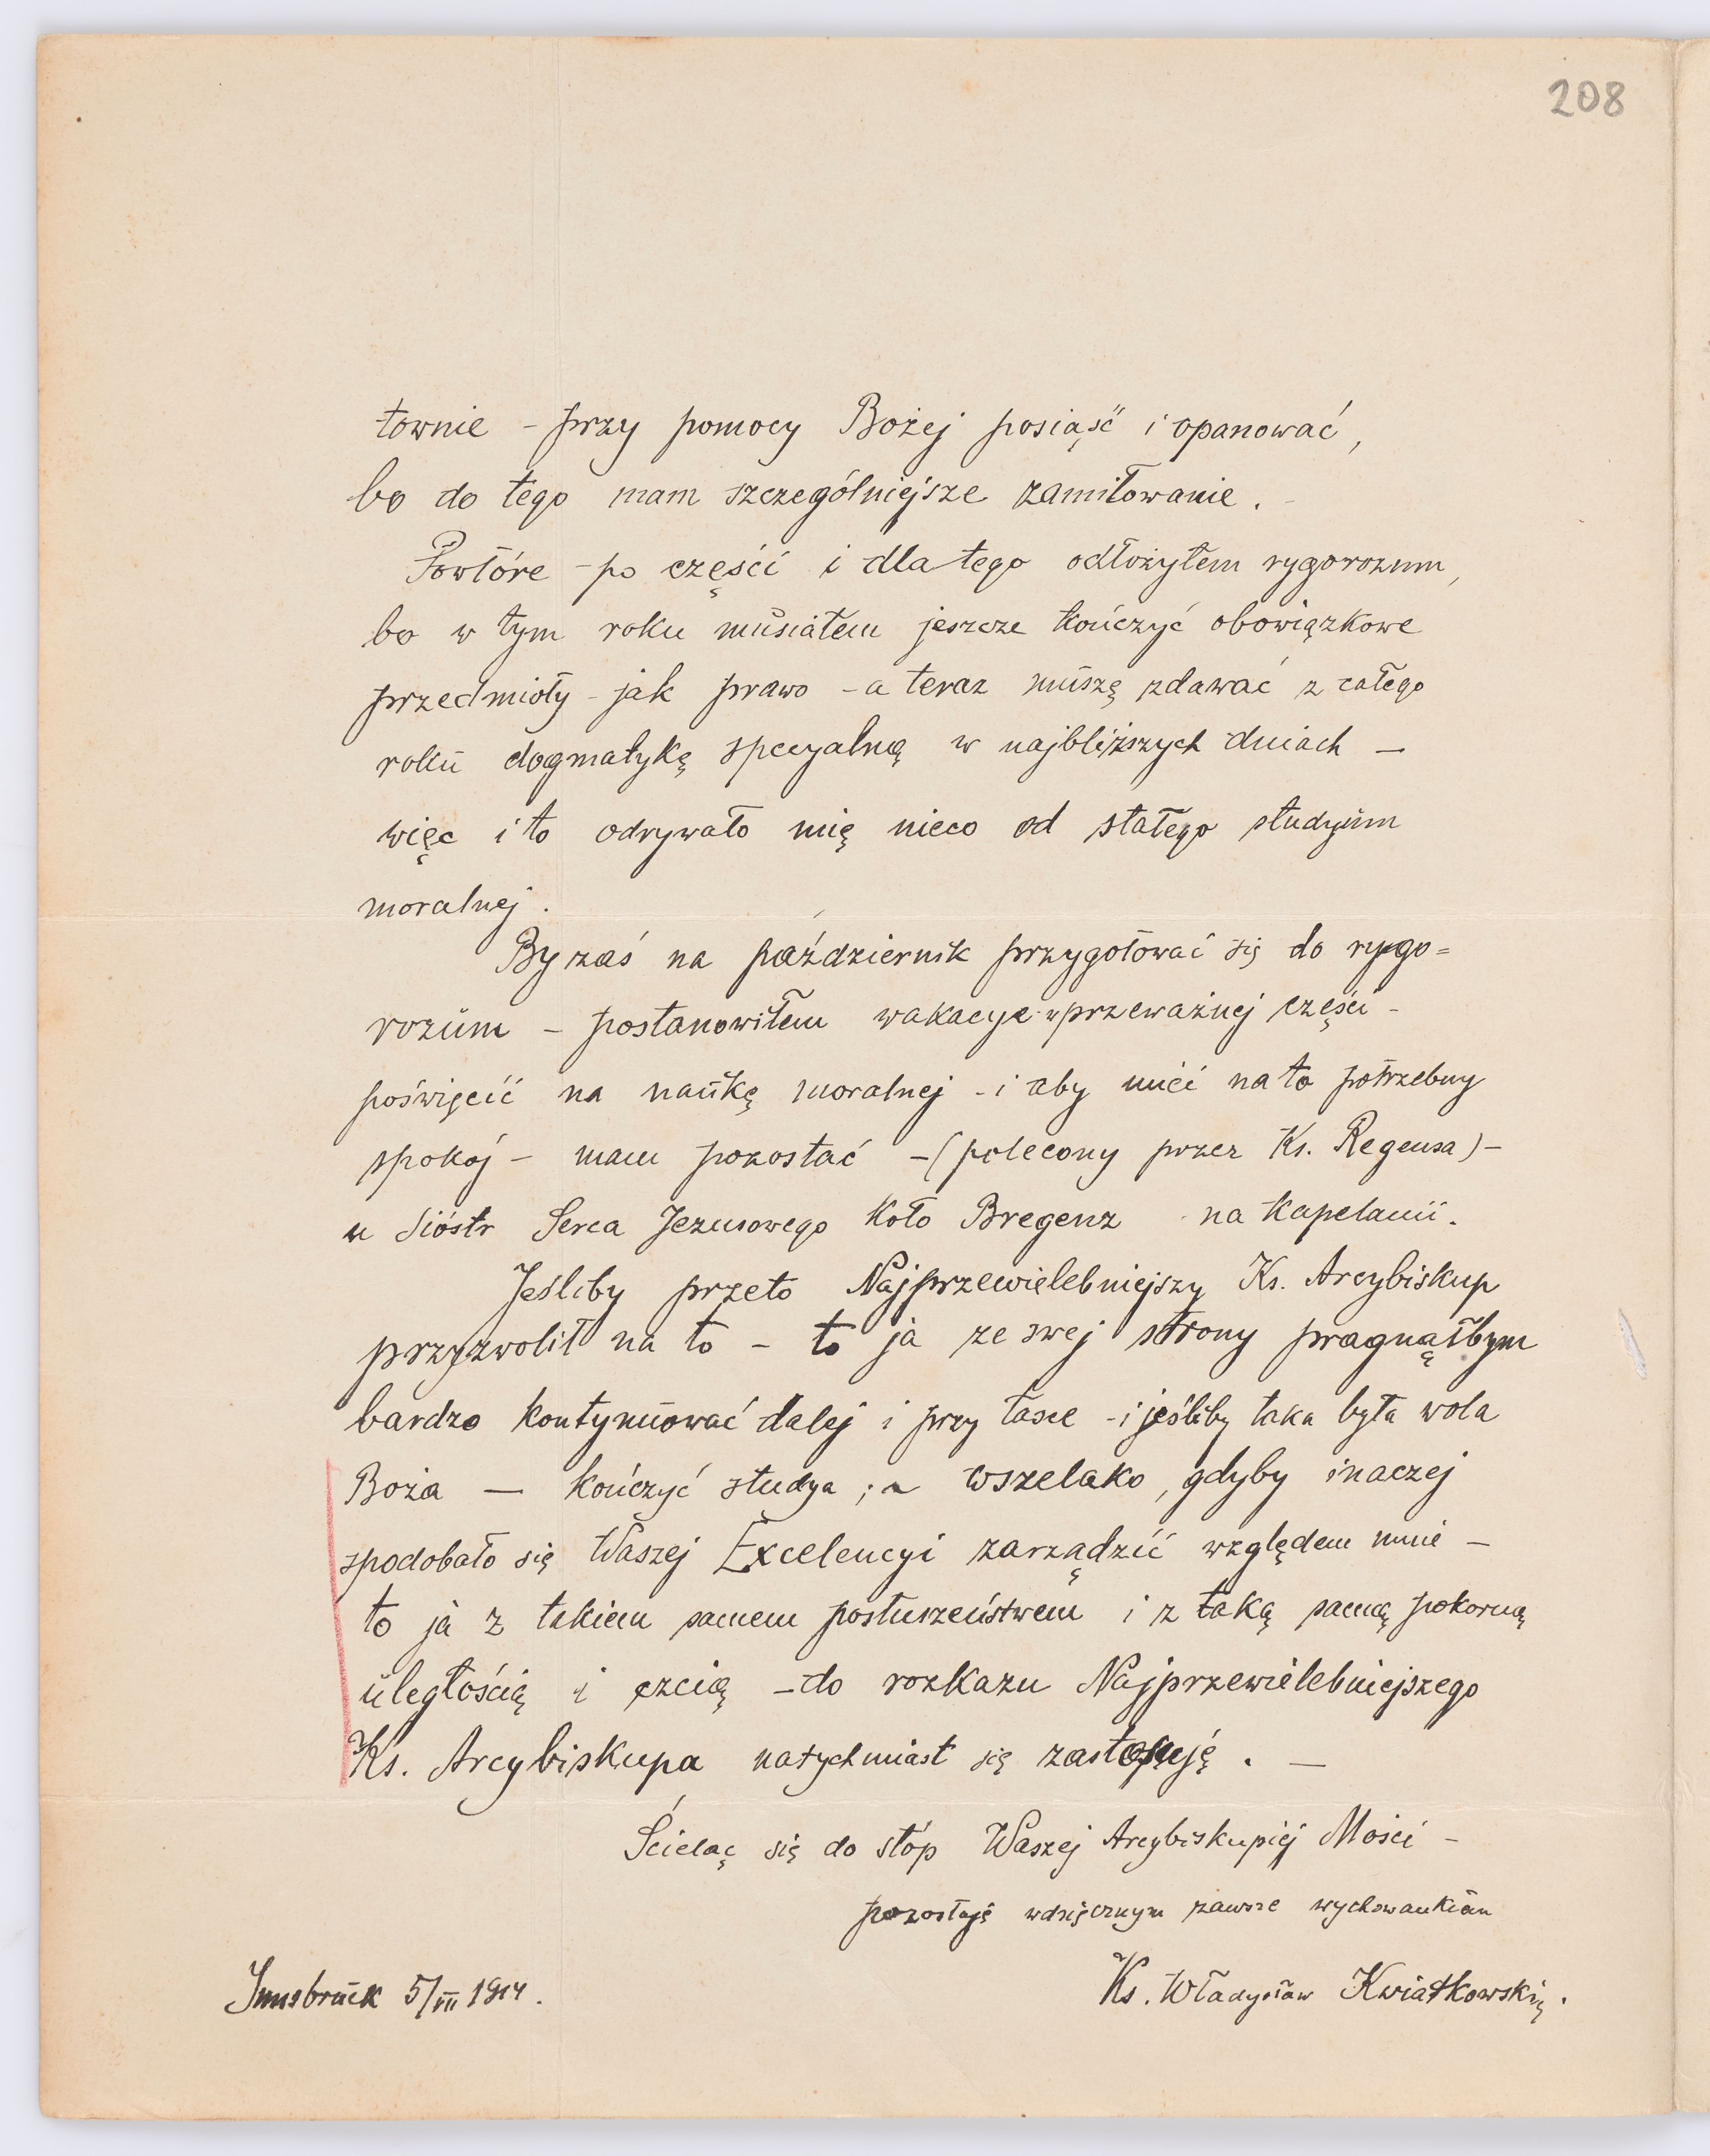 208
townie - przy pomocy Bożej posiąść i opanować,
bo do tego mam szczególniejsze zamiłowanie.
Powtóre - po części i dla tego odłożyłem rygorozum,
bo w tym roku musiałem jeszcze kończyć obowiązkowe
przedmioty - jak prawo - a teraz muszę zdawać z całego
roku dogmatykę specyalną w najbliższych dniach —
więc i to odrywało mię nieco od stałego studyum
moralnej.
By zaś na październik przygotować się do rygo=
rozum - postanowiłem wakacye w przeważnej części -
poświęcić na naukę moralnej - i aby mieć na to potrzebny
spokój - mam pozostać - (polecony przez Ks. Regensa) -
u Sióstr Serca Jezusowego koło Bregenz na kapelanii.
Jeśliby przeto Najprzewielebniejszy Ks. Arcybiskup
przyzwolił na to - to ja ze swej strony pragnąłbym
bardzo kontynuować dalej i przy łasce - i jeśliby taka była wola
Boża — kończyć studya; a wszelako, gdyby inaczej
spodobało się Waszej Excelencyi zarządzić względem mnie -
to ja z takiem samem posłuszeństwem i z taką samą pokorną
uległością i czcią - do rozkazu Najprzewielebniejszego
Ks. Arcybiskupa natychmiast się zastosuję. —
Ścieląc się do stóp Waszej Arcybiskupiej Mości -
pozostaję wdzięcznym zawsze wychowankiem
Ks. Władysław Kwiatkowski.
Innsbruck 5/VII 1914.